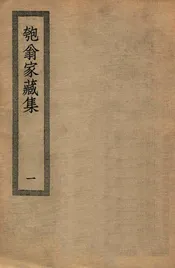 匏翁家藏集
一